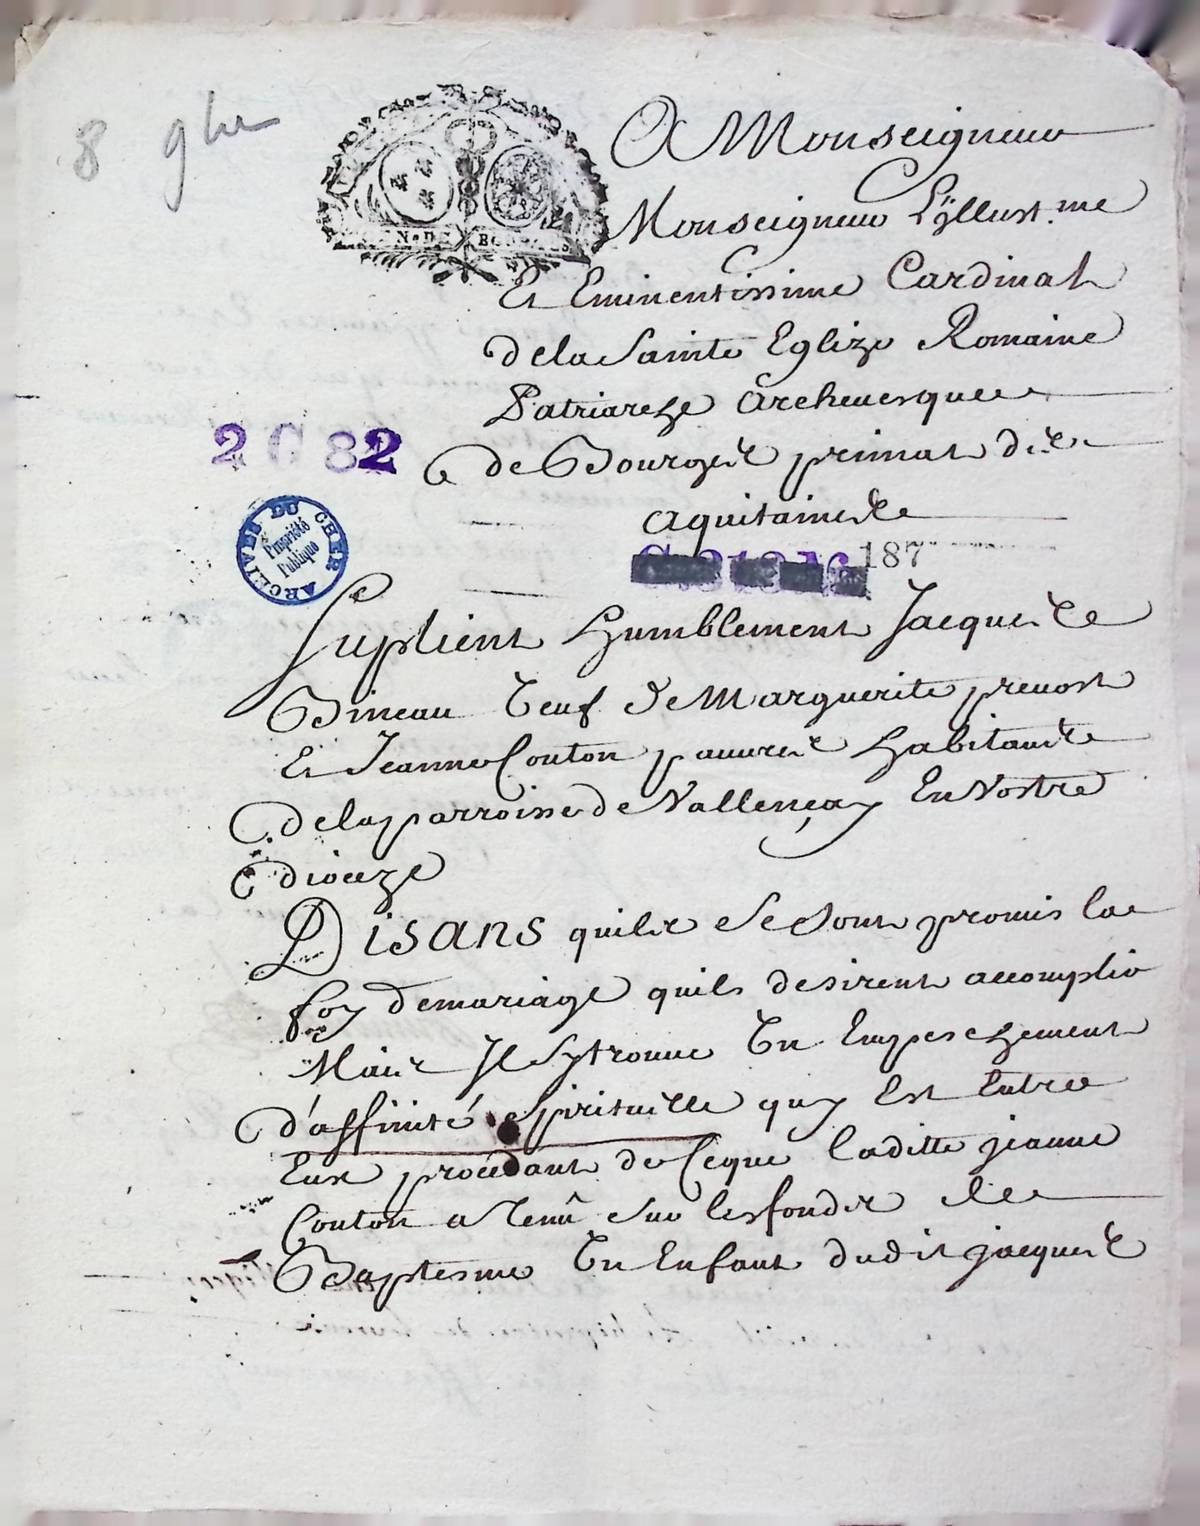 8 9bre
A Monseigneur
Monseigneur L'Jllust.me
Et Eminentissime Cardinal
de la Sainte Eglize Romaine
Patriarche Archevesque
2 G 82
de Bourges primat des
Aquitaines
ARCHIVES DU CHER
Propriété
Publique
187
Suplient humblement Jacques
Bineau veuf de Marguerite prevost
Et Jeanne Couton pauvres habitants
de la parroisse de Vallençay En Vostre
dioceze
DISANS quils se sont promis la
foy de mariage quils desirent accomplir
Mais Jl sy trouve Un Empeschement
d'affinité spirituelle quy Est Entre
Eux procedant de Ceque laditte jeanne
Couton a Tenû sur les fonds de
Baptesme Un Enfant dudit jacques